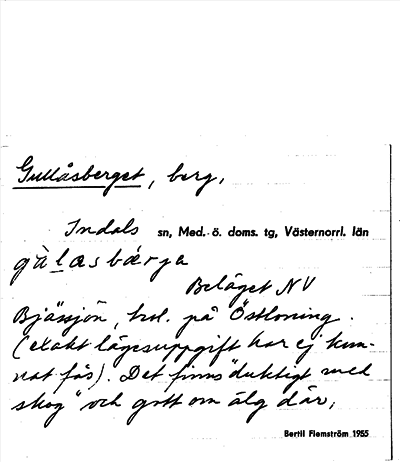 Gullåsberget, berg,
Indals sn, Med. ö. doms. tg, Västernorrl. län
gùlasbærja
Beläget NV
Bjässjön, bol. på Östloning.
(exakt lägesuppgift har ej kun-
nat fås). Det finns "duktigt med
skog" och gott om älg där,
Bertil Flemström 1955